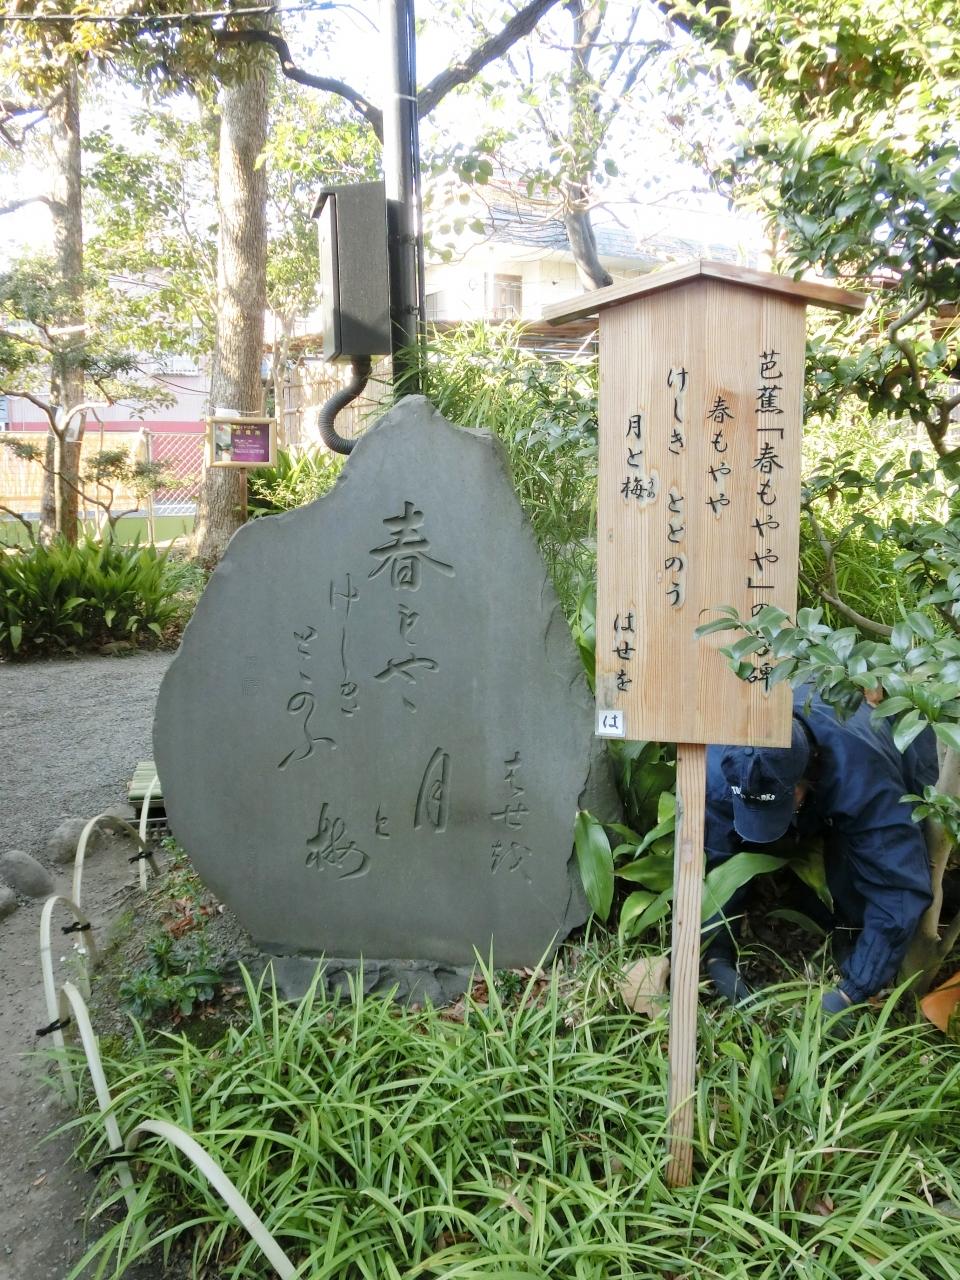 芭蕉「春もやや」の句碑
春もやや
けしき ととのう
月と梅 うめ
はせを
は
春もやゝ
けしき
とゝのふ
月
と
梅
はせ越